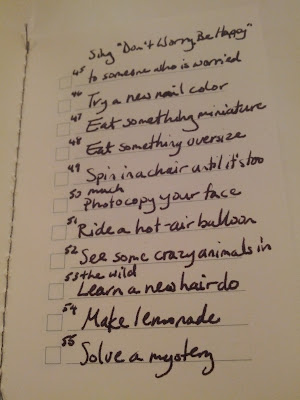 Sing "Don't Worry, Be Happy"
45 to someone who is worried
46 Try a new nail color
47 Eat something miniature
48 Eat something oversize
49 Spin in a chair until it's too
50 much
Photocopy your face
51 Ride a hot-air balloon
52 See some crazy animals in
53 the wild
Learn a new hairdo
54 Make lemonade
55 Solve a mystery